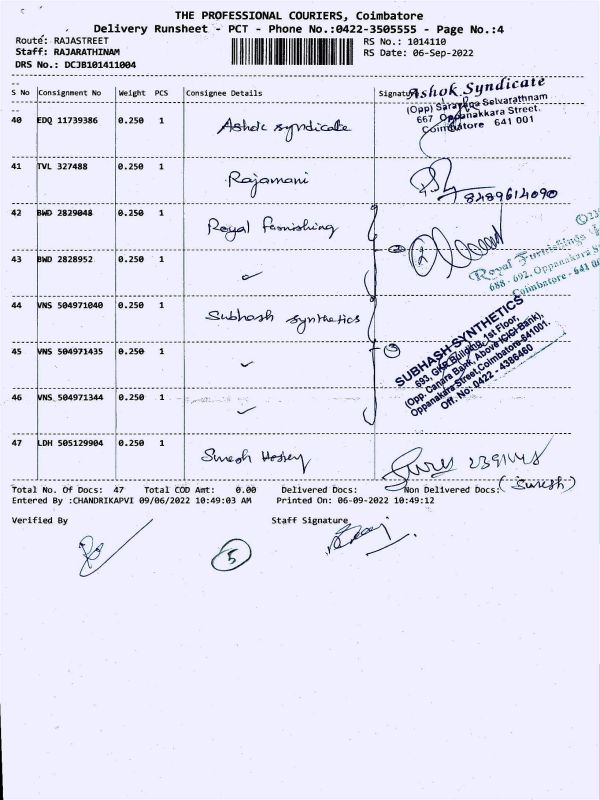 THE PROFESSIONAL COURIERS, Coimbatore
Delivery Runsheet - PCT - Phone No.:0422-3505555 - Page No.:4
Route: RAJASTREET
RS No.: 1014110
Staff: RAJARATHINAM
RS Date: 06-Sep-2022
DRS No.: DCJB101411004
S No Consignment No Weight PCS Consignee Details Signature
Ashok Syndicate
(Opp) Sarayana Selvarathnam
667 Oppanakkara Street.
Coimbatore 641 001
40 EDQ 11739386 0.250 1 Ashok syndicate
41 TVL 327488 0.250 1 Rajamani
8489614090
42 BWD 2829048 0.250 1 Royal furnishing
2
Royal Furnishings
688 - 692, Oppanakara
Coimbatore - 641
43 BWD 2828952 0.250 1 ✓
44 VNS 504971040 0.250 1 Subhash synthetics
3
SUBHASH SYNTHETICS
693, GKR Building, 1st Floor,
(Opp. Canara Bank, Above ICICI Bank),
Oppanakara Street, Coimbatore-641001.
Off. No: 0422 - 4386460
45 VNS 504971435 0.250 1 ✓
46 VNS 504971344 0.250 1 ✓
47 LDH 505129904 0.250 1 Suresh Hosiery
(Suresh)
Total No. Of Docs: 47 Total COD Amt: 0.00 Delivered Docs: Non Delivered Docs:
Entered By :CHANDRIKAPVI 09/06/2022 10:49:03 AM Printed On: 06-09-2022 10:49:12
Verified By Staff Signature
5